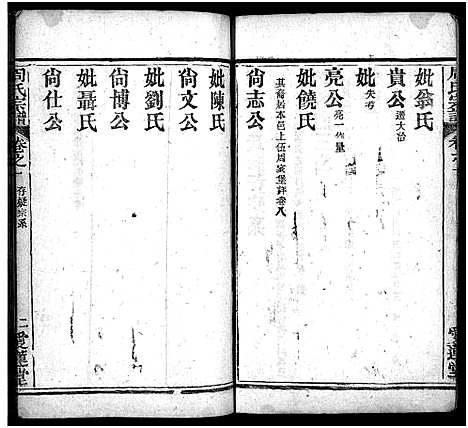 周氏宗譜
卷之一
愛蓮堂
妣翁氏
貴公 遷大冶
妣 失考
亮公 亮一作量
妣饒氏
其裔居本邑上伍周家堡詳卷八
尚志公
妣陳氏
尚文公
妣劉氏
尚博公
妣聶氏
尚仕公
周氏宗譜
卷之一
存疑宗系
二
愛蓮堂